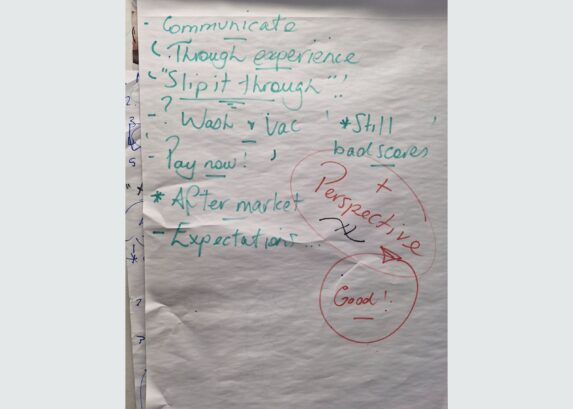 - Communicate
( Through experience
( "Slip it through"..'
- ?
- Wash & Vac '
*Still '
bad scores
- Pay now! '
* After market
- Expectations...
+
Perspective
Good!
2.
3
5